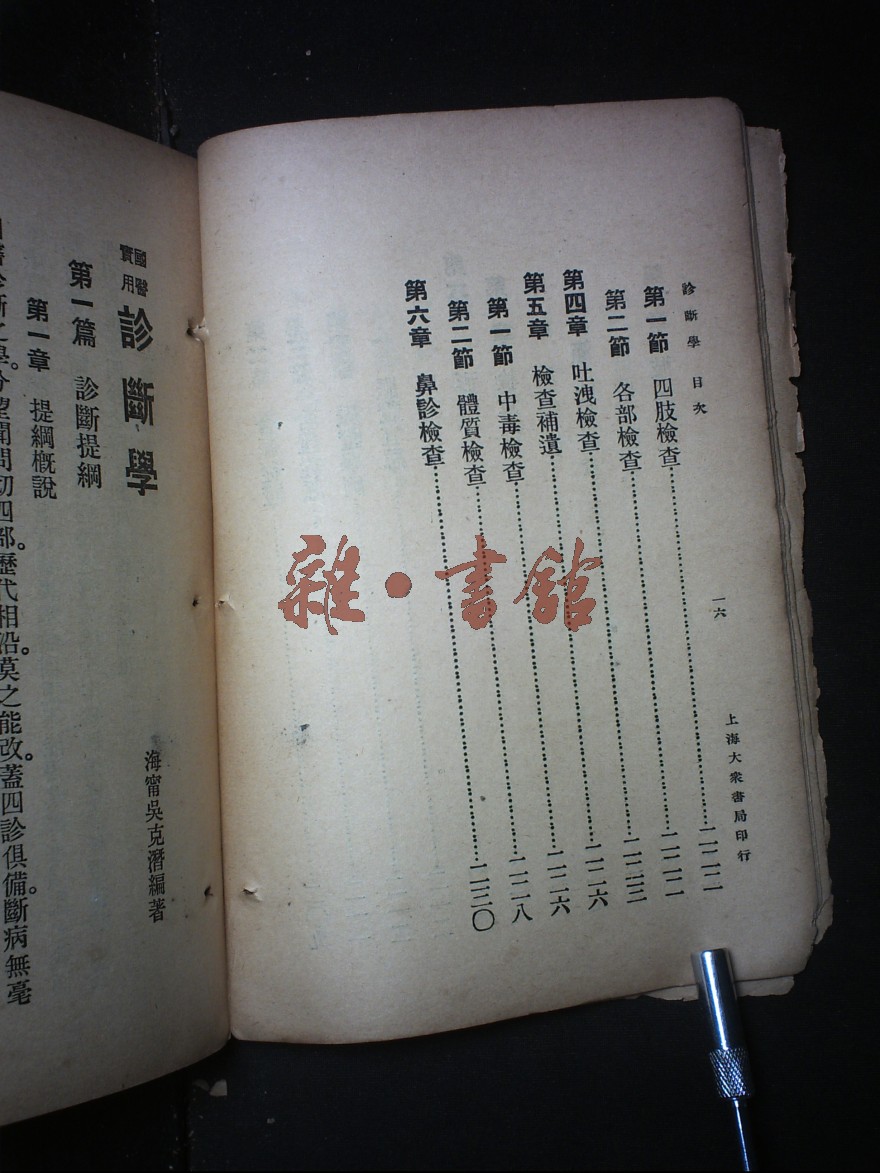 診斷學 目次
一六
上海大衆書局印行
第一節 四肢檢查……二二二
第二節 各部檢查……二二二
第四章 吐洩檢查……二二三
第五章 檢查補遺……二二六
第一節 中毒檢查……二二六
第二節 體質檢查……二二八
第六章 鼻診檢查……二三〇
國醫實用 診斷學
海甯吳克潛編著
第一篇 診斷提綱
第一章 提綱概說
診斷之學。分望聞問切四部。歷代相沿。莫之能改。蓋四診俱備。斷病無毫
雜·書館